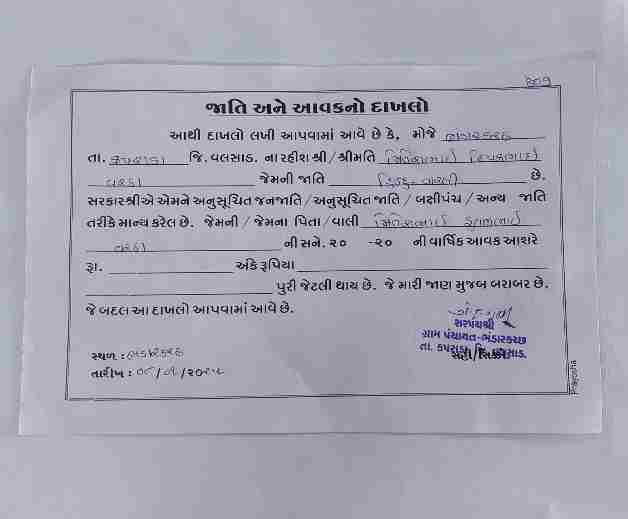 ૨૦૧
જાતિ અને આવકનો દાખલો
આથી દાખલો લખી આપવામાં આવે છે કે, મોજે ભંડારકચ્છ
તા. કપરાડા જિ. વલસાડ. ના રહીશ શ્રી / શ્રીમતિ
જેમની જાતિ હિન્દુ-વારલી છે.
સરકારશ્રીએ એમને અનુસૂચિત જનજાતિ / અનુસૂચિત જાતિ / બક્ષીપંચ / અન્ય જાતિ
તરીકે માન્ય કરેલ છે. જેમની / જેમના પિતા / વાલી
ની સને. ૨૦ -૨૦ ની વાર્ષિક આવક આશરે
રૂા. અંકે રૂપિયા
પુરી જેટલી થાય છે. જે મારી જાણ મુજબ બરાબર છે.
જે બદલ આ દાખલો આપવામાં આવે છે.
સરપંચશ્રી
ગ્રામ પંચાયત-ભંડારકચ્છ
તા. કપરાડા, જિ. વલસાડ.
સહી/સિક્કો
સ્થળ : ભંડારકચ્છ
તારીખ :